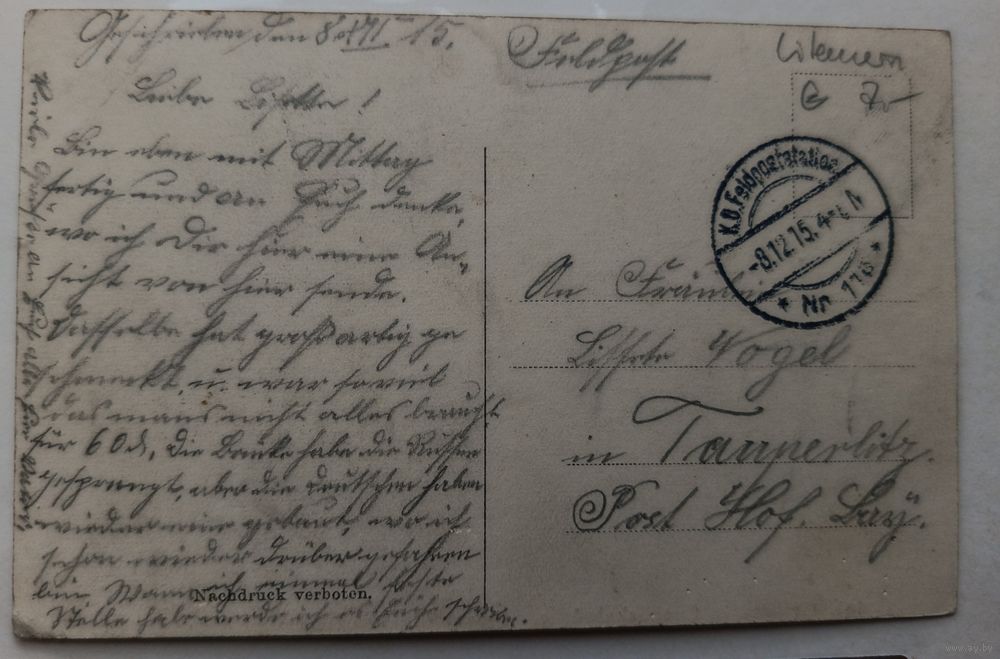 Geschrieben den 8 15.
Liebe Lisette!
Bin eben mit Mittag
fertig und an Euch denke,
wo ich Dir hier eine An-
sicht von hier sende.
Dasselbe hat großartig ge
schmeckt, u. war soviel
das mans nicht alles braucht
für 60 d, die Brücke habe die Russen
gesprengt, aber die Deutschen haben
wieder eine gebaut, wo ich
schon wieder drüber gefahren
bin Wann ich einmal feste
Stelle habe werde ich es Euch schreiben.
Nachdruck verboten.
Feldpost
G 7,-
K.D. Feldpoststation
-8.12.15. 4-
* Nr 116 *
An
Lissete Vogel
in Tauperlitz.
Post Hof. Bay.
www.ay.by